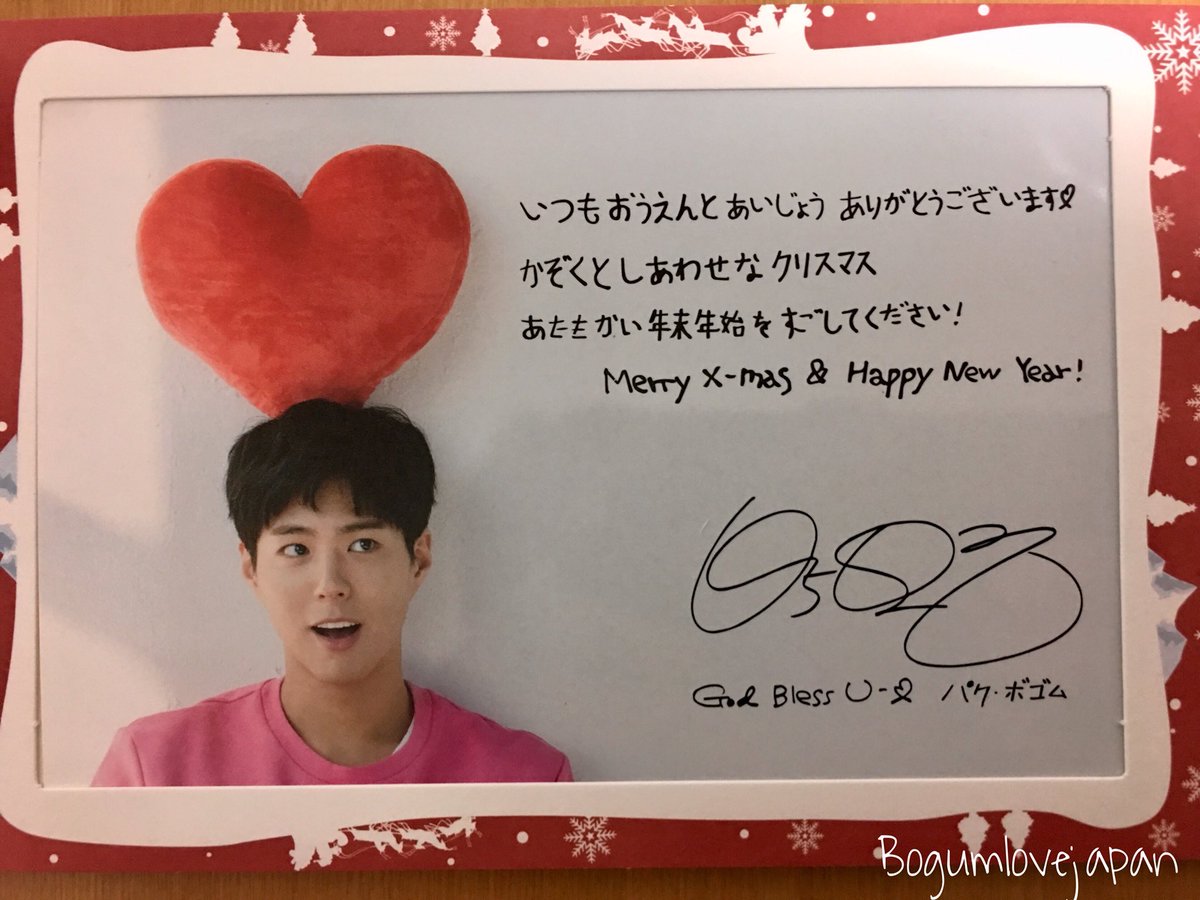 いつもおうえんとあいじょう ありがとうございます♡
かぞくとしあわせなクリスマス
あたたかい年末年始をすごしてください!
Merry X-mas & Happy New Year!
God Bless U-♡ パク・ボゴム
Bogumlovejapan